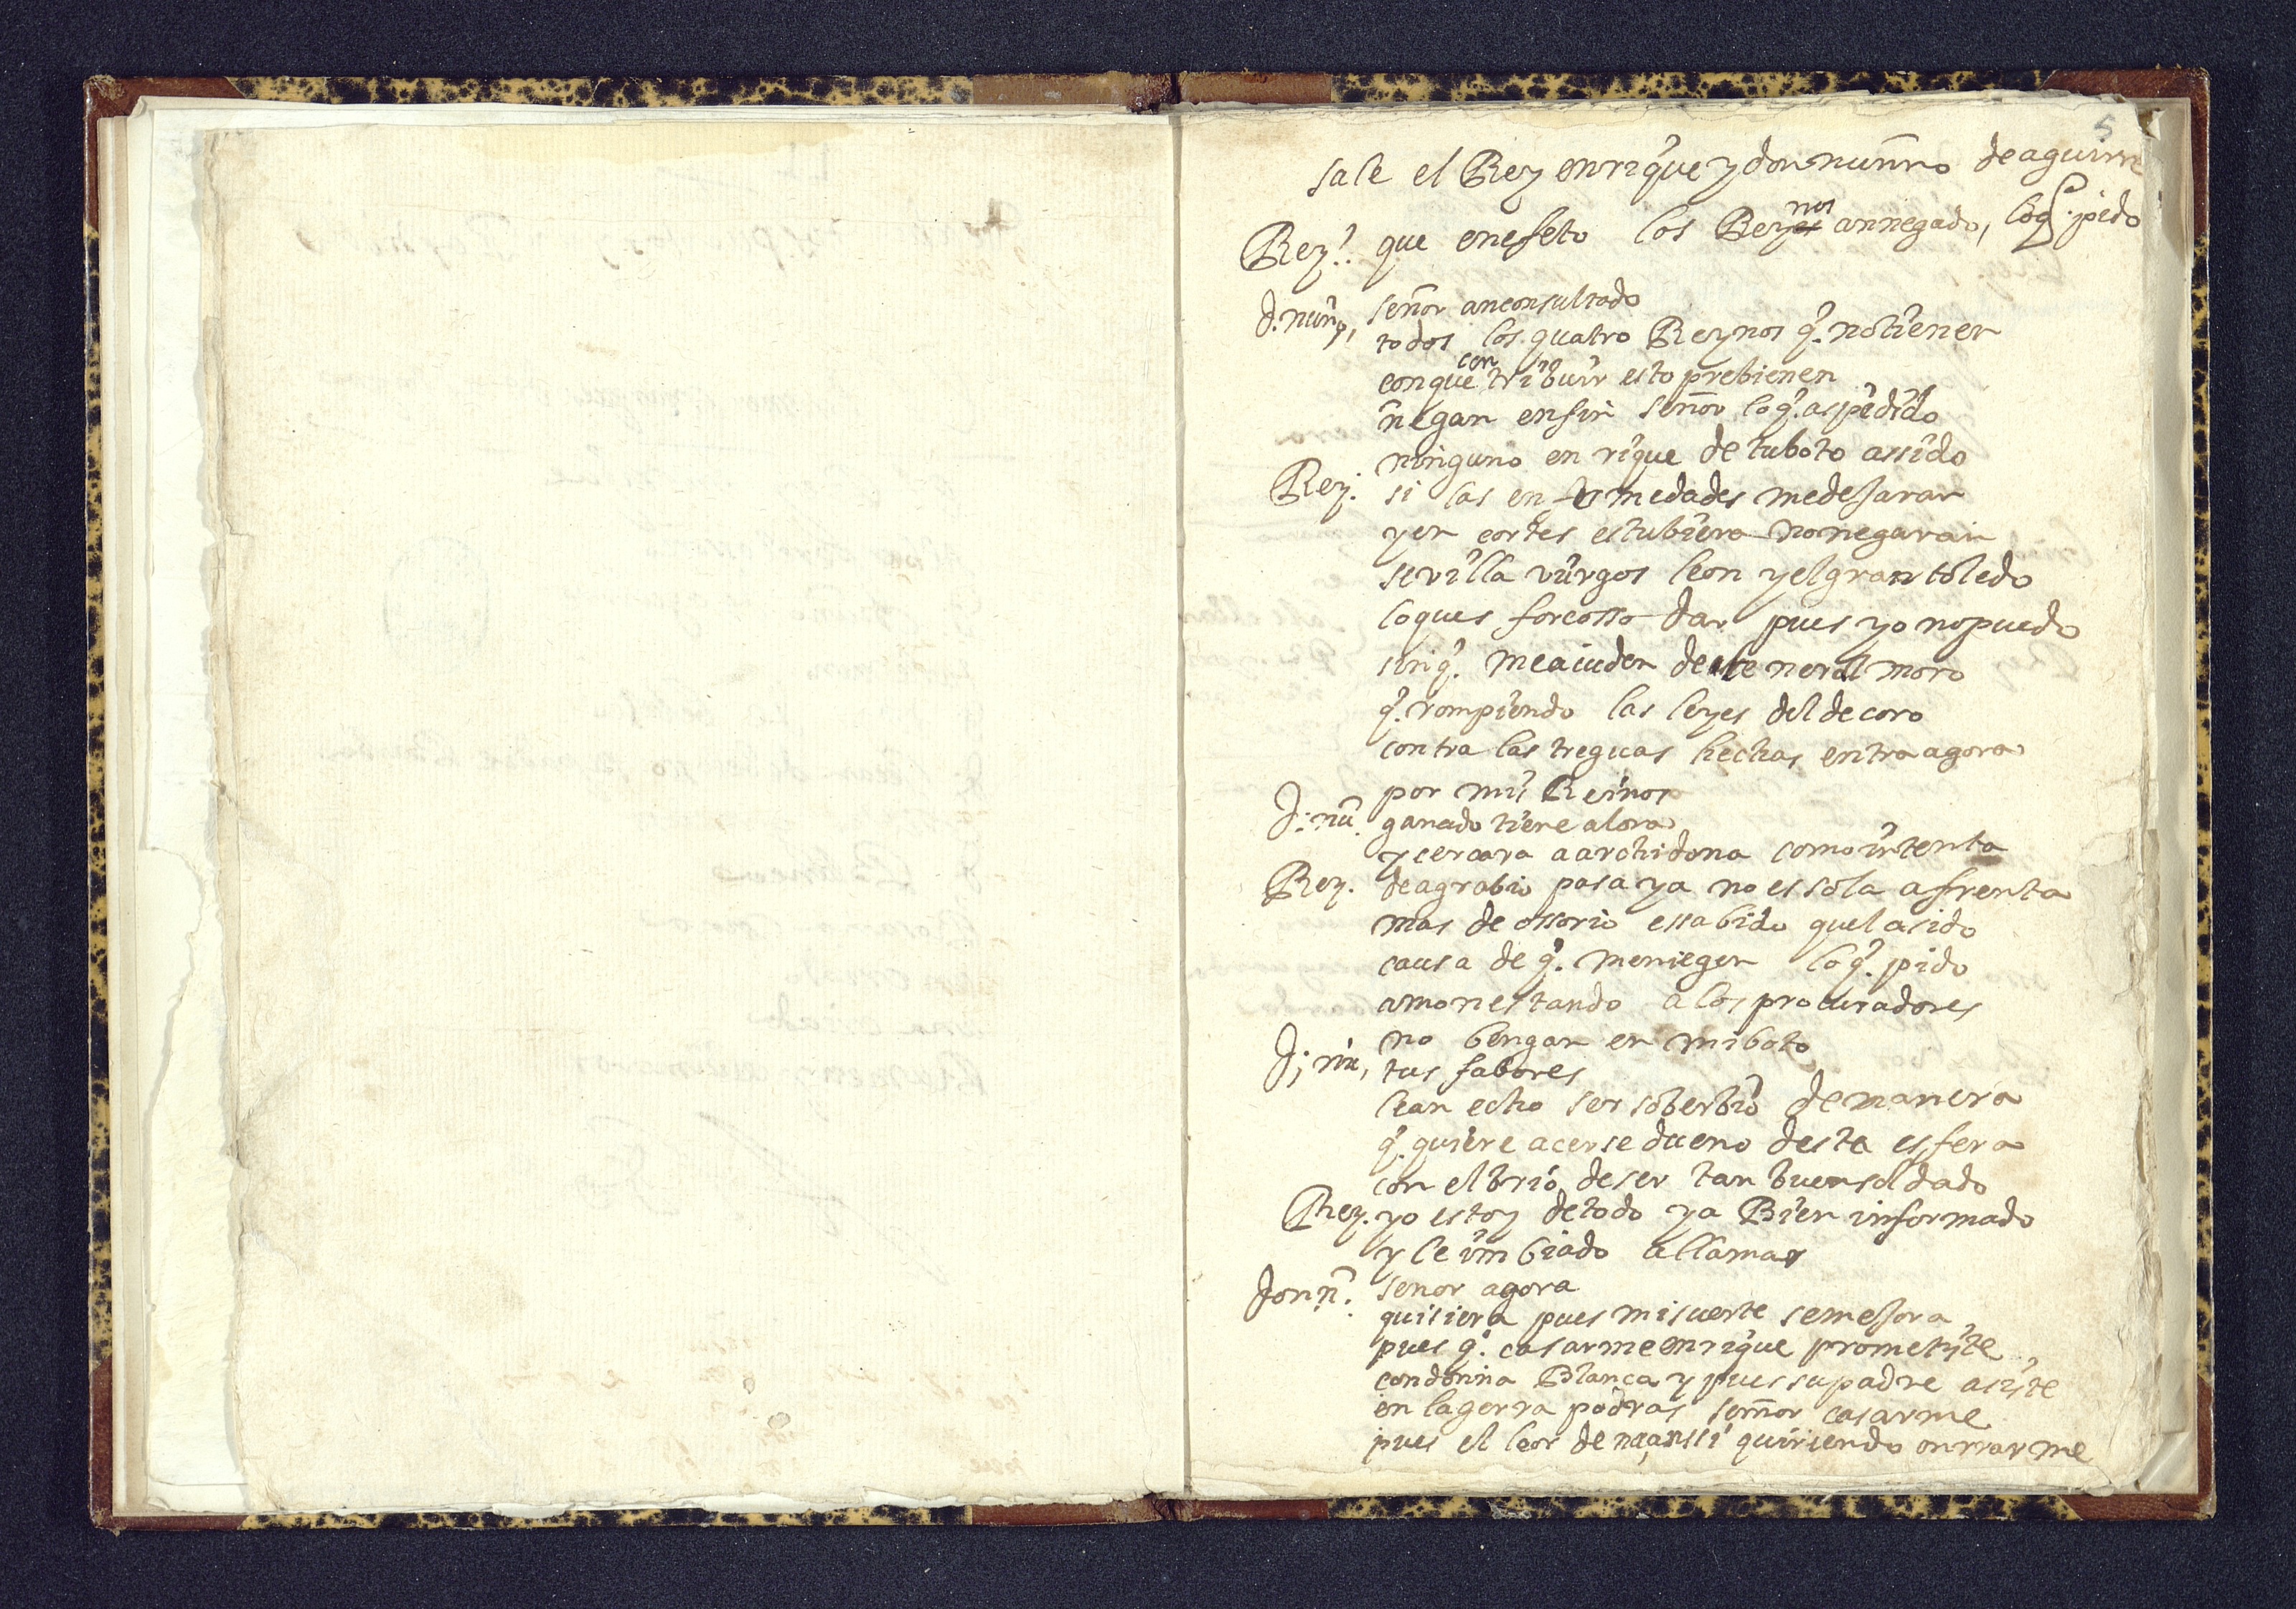 5
sale el Rey enrique y don nunno de aguirre
Rey. que enefeto los Reynos an negado, loq. pido
d. nuño, señor anconsultado
todos los quatro Reynos q. notienen
conque contribuir esto prebienen
niegan enfin señor loq. as pedido
ninguno en rique de tuboto assido
Rey. si las enfermedades medejaran
yen cortes estubiera nonegaran
sevilla vurgos leon yelgran toledo
loques forcosso dar pues yo nopuedo
sinq. meaiuden detener al moro
q. rompiendo las leyes del decoro
contra las treguas hechas entra agora
por mis Reinos
d. nu. ganado tiene alora
y cercara a archidona como intenta
Rey. deagrabio pasa ya no es sola afrenta
mas de ossorio essabido quel asido
causa de q. menieger loq. pido
amonestando a los procuradores
no bengan en miboto
d. nu, tus fabores
lean echo ser soberbio demanera
q. quiere acerse dueno desta esfera
con el brio deser tan buensoldado
Rey. yo estoy detodo ya Bien informado
y le imbiado allamar
don n. senor agora
quisiera pues misuerte semejora
pues q. casarmeenrique prometiste
condonna Blanca y pues supadre asiste
en lagerra podras sennor casarme
pues el leor de quiriendo onrrarme